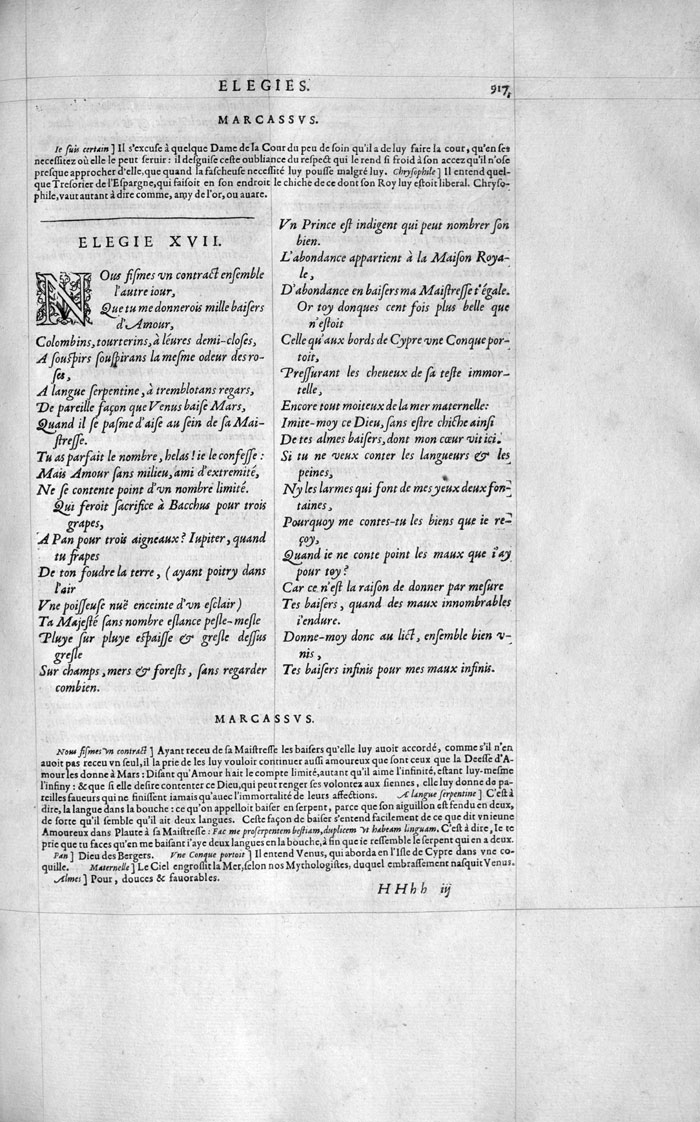 ELEGIES.
917,
MARCASSVS.
Je suis certain] Il s'excuse à quelque Dame de la Cour du peu de soin qu'il a de luy faire la cour, qu'en ses
necessitez où elle le peut seruir: il desguise ceste oubliance du respect qui le rend si froid à son accez qu'il n'ose
presque approcher d'elle, que quand la fascheuse necessité luy pousse malgré luy. Chrysophile] Il entend quel-
que Tresorier de l'Espargne, qui faisoit en son endroit le chiche de ce dont son Roy luy estoit liberal. Chryso-
phile, vaut autant à dire comme, amy de l'or, ou auare.
ELEGIE XVII.
NOus fismes vn contract ensemble
l'autre iour,
Que tu me donnerois mille baisers
d'Amour,
Colombins, tourterins, à léures demi-closes,
A souspirs souspirans la mesme odeur des ro-
ses,
A langue serpentine, à tremblotans regars,
De pareille façon que Venus baise Mars,
Quand il se pasme d'aise au sein de sa Mai-
stresse.
Tu as parfait le nombre, helas! ie le confesse:
Mais Amour sans milieu, ami d'extremité,
Ne se contente point d'vn nombre limité.
Qui feroit sacrifice à Bacchus pour trois
grapes,
A Pan pour trois aigneaux? Iupiter, quand
tu frapes
De ton foudre la terre, (ayant poitry dans
l'air
Vne poisseuse nuë enceinte d'vn esclair)
Ta Majesté sans nombre eslance pesle-mesle
Pluye sur pluye espaisse & gresle dessus
gresle
Sur champs, mers & forests, sans regarder
combien.
Vn Prince est indigent qui peut nombrer son
bien.
L'abondance appartient à la Maison Roya-
le,
D'abondance en baisers ma Maistresse t'égale.
Or toy donques cent fois plus belle que
n'estoit
Celle qu'aux bords de Cypre vne Conque por-
toit,
Pressurant les cheueux de sa teste immor-
telle,
Encore tout moiteux de la mer maternelle:
Imite-moy ce Dieu, sans estre chiche ainsi
De tes almes baisers, dont mon cœur vit ici.
Si tu ne veux conter les langueurs & les
peines,
Ny les larmes qui font de mes yeux deux fon-
taines,
Pourquoy me contes-tu les biens que ie re-
çoy,
Quand ie ne conte point les maux que i'ay
pour toy?
Car ce n'est la raison de donner par mesure
Tes baisers, quand des maux innombrables
i'endure.
Donne-moy donc au lict, ensemble bien v-
nis,
Tes baisers infinis pour mes maux infinis.
MARCASSVS.
Nous fismes vn contract] Ayant receu de sa Maistresse les baisers qu'elle luy auoit accordé, comme s'il n'en
auoit pas receu vn seul, il la prie de les luy vouloir continuer aussi amoureux que sont ceux que la Deesse d'A-
mour les donne à Mars: Disant qu'Amour hait le compte limité, autant qu'il aime l'infinité, estant luy-mesme
l'infiny: & que si elle desire contenter ce Dieu, qui peut renger ses volontez aux siennes, elle luy donne de pa-
reilles faueurs qui ne finissent iamais qu'auec l'immortalité de leurs affections. A langue serpentine] C'est à
dire, la langue dans la bouche: ce qu'on appelloit baiser en serpent, parce que son aiguillon est fendu en deux,
de sorte qu'il semble qu'il ait deux langues. Ceste façon de baiser s'entend facilement de ce que dit vn ieune
Amoureux dans Plaute à sa Maistresse: Fac me proserpentem bestiam, duplicem vt habeam linguam. C'est à dire, Ie te
prie que tu faces qu'en me baisant i'aye deux langues en la bouche, à fin que ie ressemble le serpent qui en a deux.
Pan] Dieu des Bergers. Vne Conque portoit] Il entend Venus, qui aborda en l'Isle de Cypre dans vne co-
quille. Maternelle] Le Ciel engrossit la Mer, selon nos Mythologistes, duquel embrassement nasquit Venus.
Almes] Pour, douces & fauorables.
HHhh iij